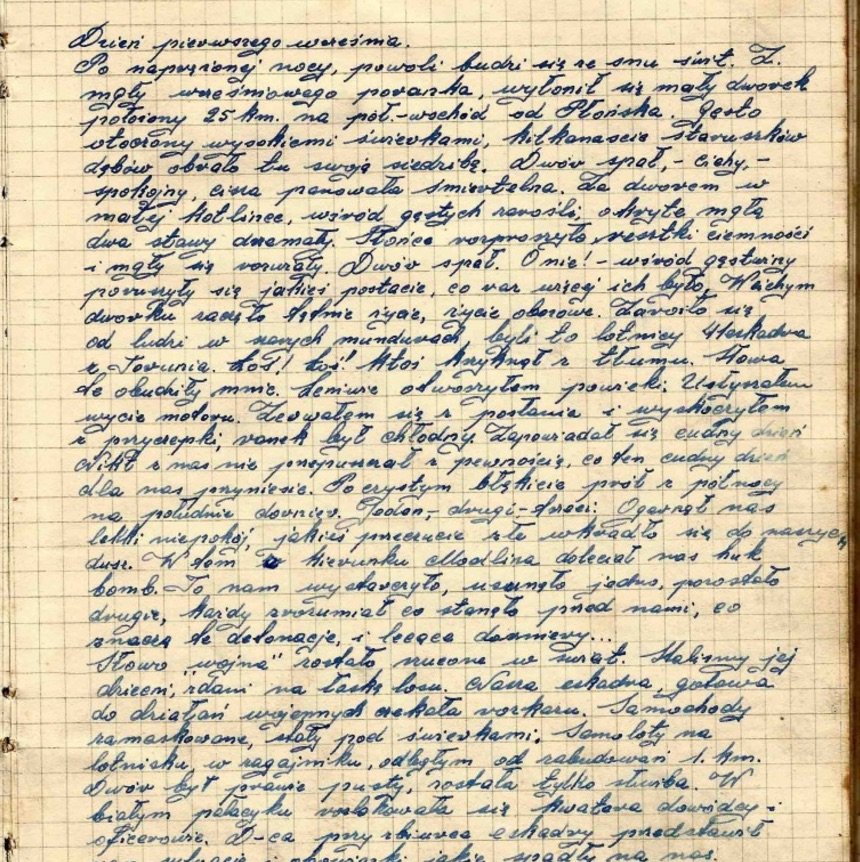 Dzień pierwszego września.
Po naprężonej nocy, powoli budzi się ze snu świt. Z.
mgły wrześniowego poranka, wyłonił się mały dworek
położony 25 km. na półn.-wschód od Płońska. gęsto
otoczony wysokiemi świerkami, kilkanaście staruszków
dębów obrało tu swoją siedzibę. Dwór spał,- cichy,-
spokojny, cisza panowała śmiertelna. Za dworem w
małej kotlince, wśród gęstych zarośli, okryte mgłą
dwa stawy drzemały. Słońce rozproszyło resztki ciemności
i mgły się rozwiały. Dwór spał. O nie! - wśród gęstwiny
poruszyły się jakieś postacie, co raz więcej ich było, W cichym
dworku zaczęło tętnić życie, życie obozowe. Zaroiło się
od ludzi w szarych mundurach byli to lotnicy 41 eskadra
z Torunia. Łoś! Łoś! Ktoś krzyknął z tłumu. Słowa
te obudziły mnie. Leniwie otworzyłem powieki; Usłyszałem
wycie motoru. Zerwałem się z posłania i wyskoczyłem
z przyczepki, ranek był chłodny. Zapowiadał się cudny dzień
Nikt z nas nie przypuszczał z pewnością, co ten cudny dzień
dla nas przyniesie. Po czystym błękicie pruł z północy
na południe dornier. Jeden,- drugi - trzeci. Ogarnął nas
lekki niepokój, jakieś przeczucie złe wkradło się do naszych
dusz. W tem z kierunku Modlina doleciał nas huk
bomb. To nam wystarczyło, usunęło jedno, pozostało
drugie, każdy zrozumiał co stanęło przed nami, co
znaczą te detonacje, i lecące dorniery...
Słowo "wojna" zostało rzucone w świat. Staliśmy jej
dziećmi, zdani na łaskę losu. Nasza eskadra, gotowa
do działań wojennych czekała rozkazu. Samochody
zamaskowane, stały pod świerkami. Samoloty na
lotnisku, w zagajniku, odległym od zabudowań 1. km.
Dwór był prawie pusty, została tylko służba. W
białym pałacyku ulokowała się kwatera dowódcy i
oficerowie. D-ca przy zbiórce eskadry przedstawił
sytuację i obowiązki jakie spadły na nas.